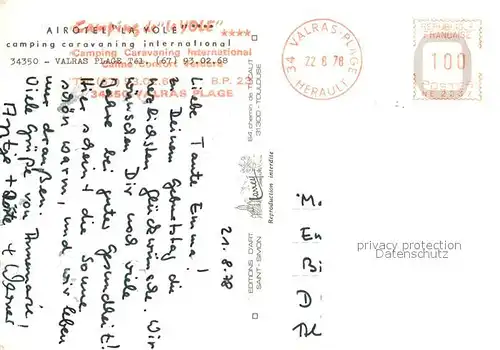 AIROTEL "LA YOLE"
camping caravaning international
34350 - VALRAS PLAGE Tél. (67) 93.02.68
Camping "La YOLE"
★★★★
Camping Caravaning International
Calme Confort Loisirs
B.P. 23
34350 VALRAS PLAGE
34 VALRAS-PLAGE
22 8 78
HERAULT
REPUBLIQUE
FRANCAISE
100
POSTES
21.8.78
Liebe Tante Emma!
Zu Deinem Geburtstag die
herzlichsten Glückwünsche. Wir
wünschen Dir noch viele
Jahre bei guter Gesundheit!
Hier scheint die Sonne
schön warm, und wir leben
nur draußen.
Viele Grüße von Annemarie!
Antje + Dörte + Werner
EDITIONS D'ART
SAINT-SIMON
84 chemin de
31300 - TOULOUSE
Reproduction interdite
M.
Em
Bi
A
privacy protection
Datenschutz